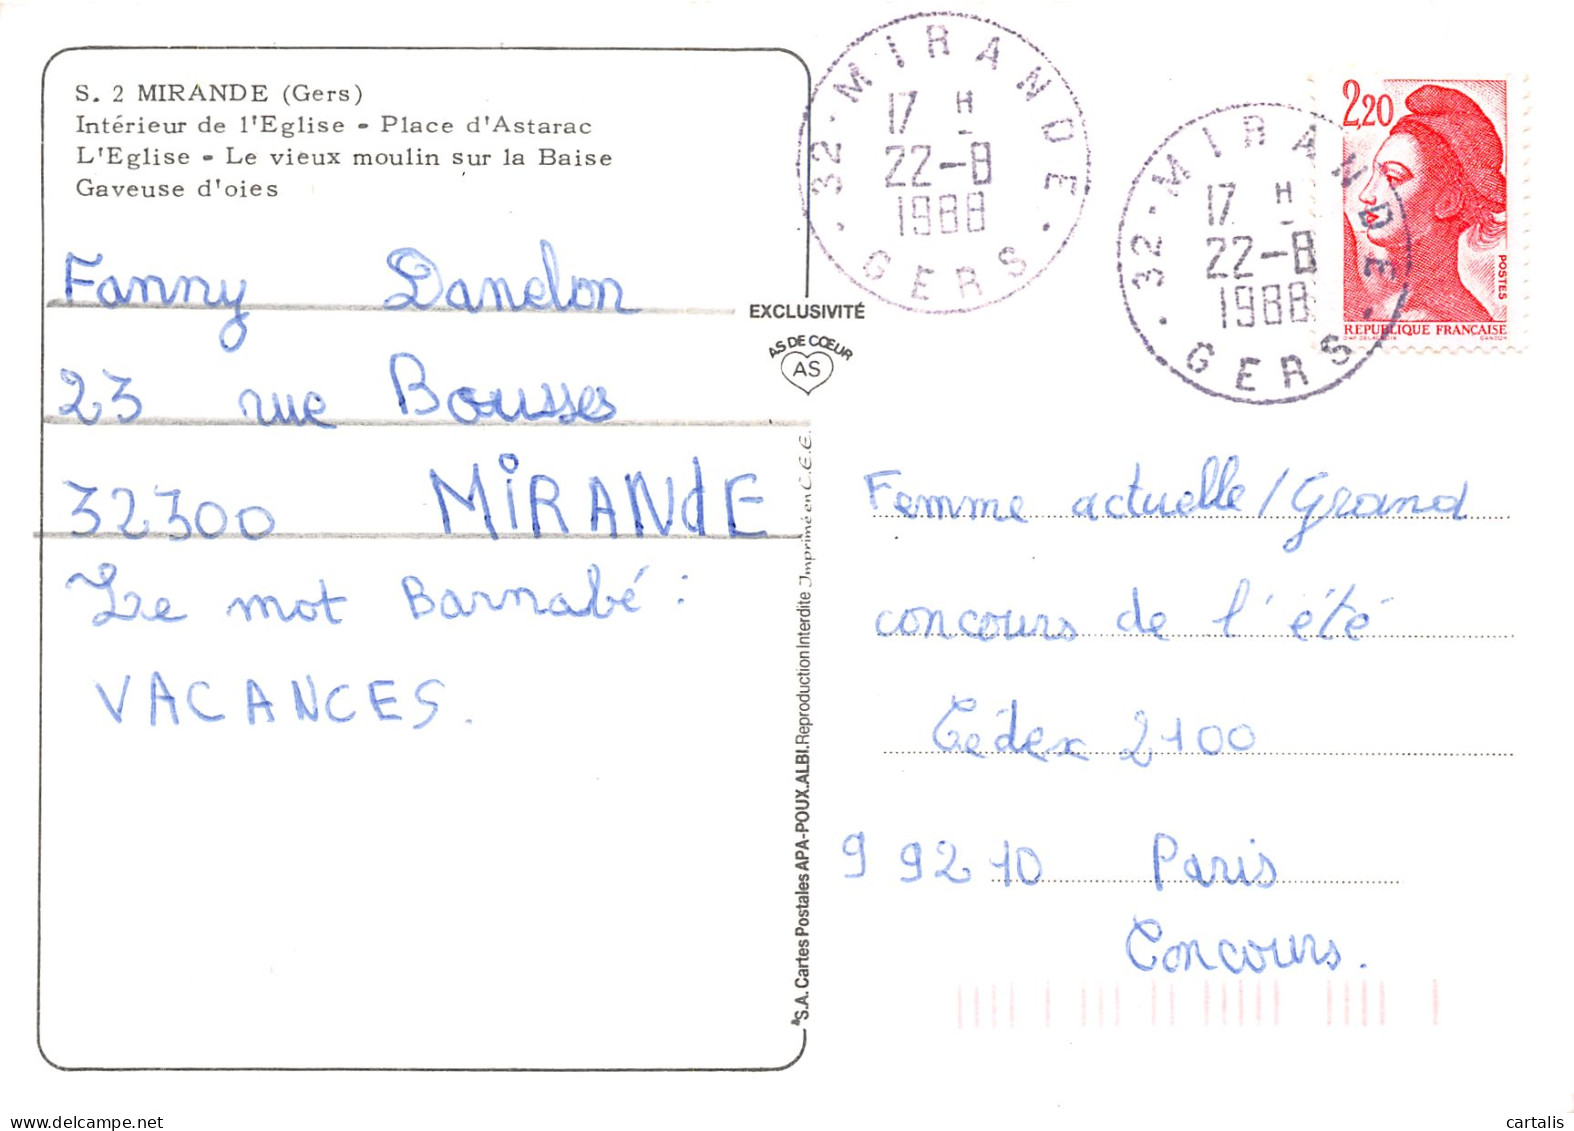 S. 2 MIRANDE (Gers)
Intérieur de l'Eglise - Place d'Astarac
L'Eglise - Le vieux moulin sur la Baise
Gaveuse d'oies
Fanny Dandon
23 rue Bousses
32300 MIRANdE
Le mot Barnabé :
VACANCES.
EXCLUSIVITÉ
AS DE CŒUR
AS
S.A. Cartes Postales APA-POUX. ALBI. Reproduction Interdite Imprimé en C.E.E.
32 - MIRANDE
17 H
22-8
1988
GERS
32 - MIRANDE
17 H
22-8
1988
GERS
2,20
POSTES
REPUBLIQUE FRANCAISE
Femme actuelle/Grand
concours de l'été
Cédex 2100
99210 Paris
Concours.
cartalis